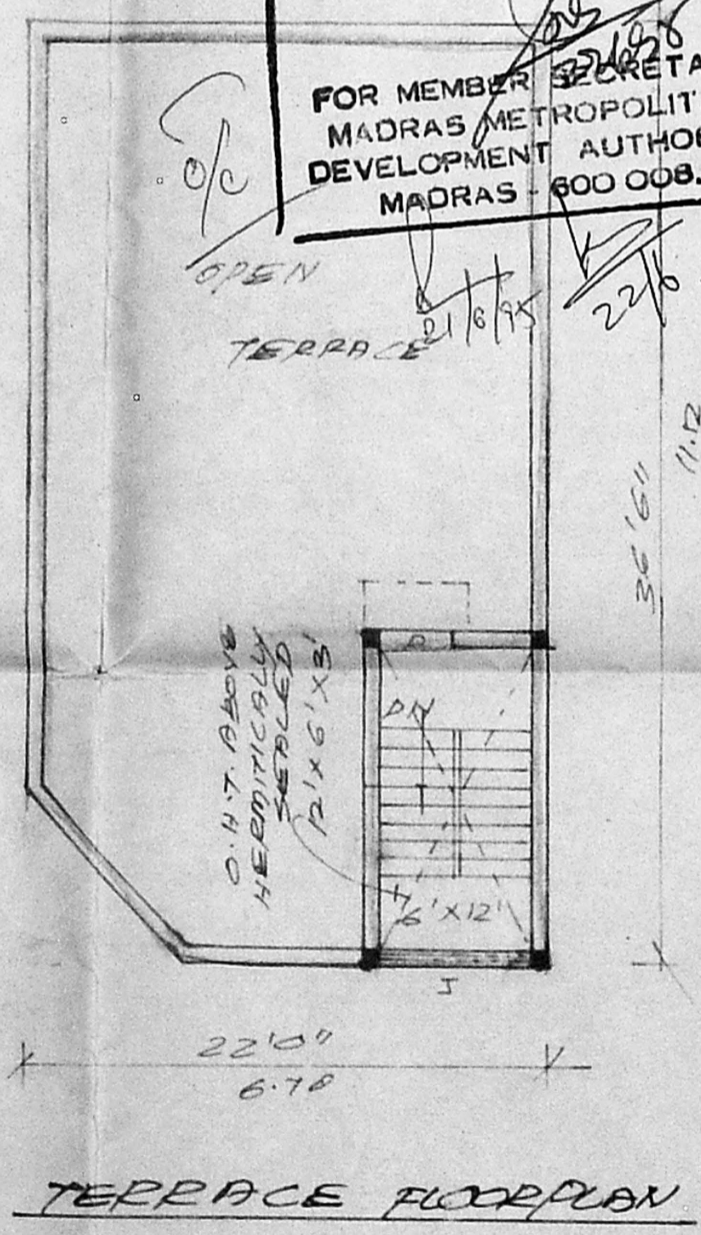 FOR MEMBER SECRETA
MADRAS METROPOLIT
DEVELOPMENT AUTHO
MADRAS - 600 008.
O/C
OPEN
TERRACE
21/6/95
22/6
36'6"
11.12
O.H.T. ABOVE
HERMITICALLY
SEALED
12'X6'X3'
D
DN
6'X12'
J
22'0"
6.70
TERRACE FLOORPLAN